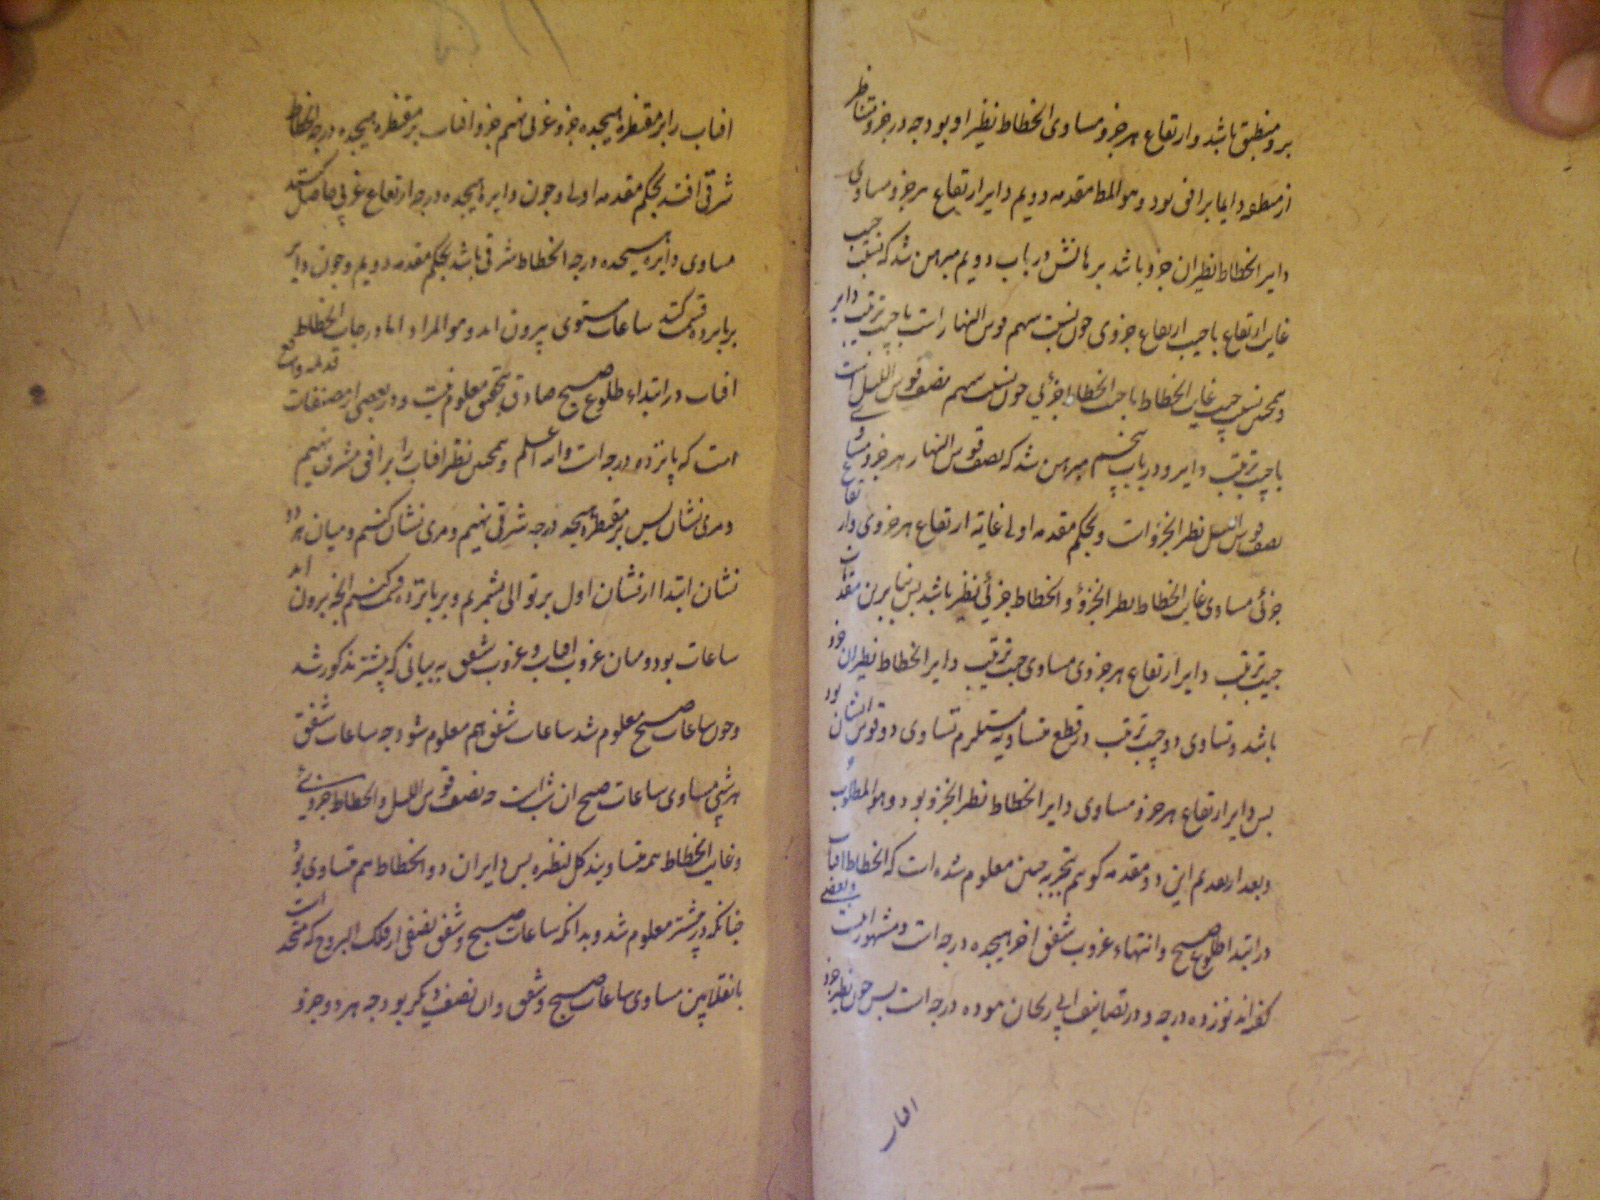 برو منطبق باشد و ارتفاع هر جزو مساوی انحطاط نظیر او بود چه در جزو متناظر
از منطقه دایما بر افق بود و هو المط مقدمه دویم دایر ارتفاع هر جزو مساوی
دایر انحطاط نظیر ان جزو باشد برهانش در باب دویم مبرهن شد که نسبت جیب
غایت ارتفاع با جیب ارتفاع جزوی چون نسبت سهم قوس النهار است با جیب ترتیب دایر
و همچنین نسبت جیب غایت انحطاط با جیب انحطاط جزئی چون نسبت سهم نصف قوس اللیل است
با جیب ترتیب دایر و در باب پنجم مبرهن شد که نصف قوس النهار هر جزو مساوی
نصف قوس اللیل نظیر الجزو است و بحکم مقدمه اولی غایة ارتفاع هر جزوی و ارتفاع
جزئی مساوی غایت انحطاط نظیر الجزو و انحطاط جزئی نظیر باشد پس بنا برین مقدمات
جیب ترتیب دایر ارتفاع هر جزوی مساوی جیب ترتیب دایر انحطاط نظیر ان جزو
باشد و تساوی دو جیب ترتیب در قطع متساویه مستلزم تساوی دو قوس ایشان بود
پس دایر ارتفاع هر جزو مساوی دایر انحطاط نظیر الجزو بود و هو المطلوب
و بعد از تقدیم این دو مقدمه کوییم بتجربه چنین معلوم شده است که انحطاط افتاب
در ابتدا طلوع صبح و انتهاء غروب شفق اخر هیجده درجه است و مشهور اینست و بعضی
کفته اند نوزده درجه و در تصانیف ابی ریحان هوده درجه است پس چون نظیر جزو
افتاب
افتاب را بر مقنطره هیجده جزو غربی نهیم جزو افتاب بر مقنطره هیجده درجه انحطاط
شرقی افتد بحکم مقدمه اولی و چون دایر هیجده درجه ارتفاع غربی حاصل کنند
مساوی دایره هیجده درجه انحطاط شرقی باشد بحکم مقدمه دویم و چون دایر
بر پانزده قسمت کنند ساعات مستوی بیرون اید و هو المراد اما درجات انحطاط
افتاب در ابتداء طلوع صبح صادق بتحقیق معلوم نیست و در بعضی از مصنفات
است که پانزده درجه است والله اعلم و همچنین نظیر افتاب را بر افق مشرق نهیم
و مری نشان پس بر مقنطره هیجده درجه شرقی نهیم و مری نشان کنیم و میان هر دو
نشان ابتدا از نشان اول بر توالی بشمریم و بر پانزده قسمت کنیم انچه بیرون اید
ساعات بود و میان غروب افتاب و غروب شفق به بیانی که پیشتر مذکور شد
و چون ساعات صبح معلوم شد ساعات شفق هم معلوم شود چه ساعات شفق
هر شبی مساوی ساعات صبح ان شب است چه نصف قوس اللیل و انحطاط جزوی
و غایت انحطاط همه متساویند کل لنظیره پس دایر ان دو انحطاط هم متساوی بود
چنانکه در پیشتر معلوم شد و بدانکه ساعات صبح و شفق نصفی از فلک البروج که متحد است
بانقلابین مساوی ساعات صبح و شفق و ان نصف دیکر بود چه هر دو جزو